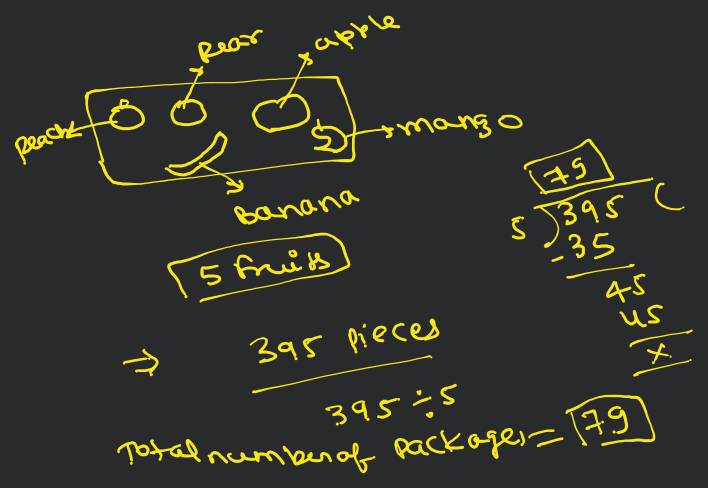 Pear
apple
peach
mango
Banana
5 fruits
79
5)395(
-35
45
45
x
⇒ 395 pieces
395 ÷ 5
Total number of packages = 79